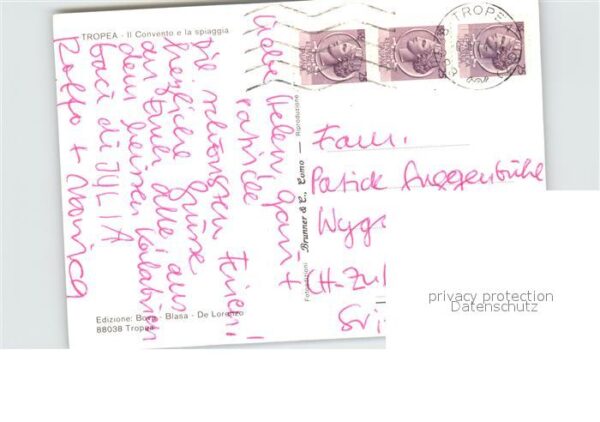 TROPEA - Il Convento e la spiaggia
Liebe Helen, Gari +
Patrick
Die schönsten Ferien!
herzliche Grüsse
an Euch alle aus
dem heissen Kalabrien
baci di JULIA
Rolfo + Monica
Edizione: Bova - Blasa - De Lorenzo
88038 Tropea
Brunner & C., Como
Riproduzione
TROPEA
Fam.
Patrick Guggenbühl
Wyg
CH-Zu
privacy protection
Datenschutz